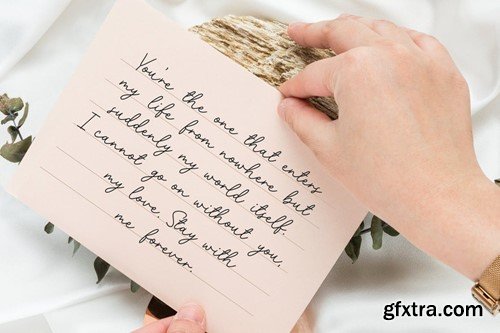 You're the one that enters
my life from nowhere but
suddenly my world itself.
I cannot go on without you,
my love. Stay with
me forever.
gfxtra.com